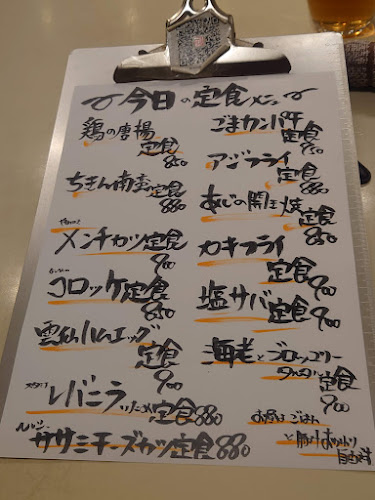 今日の定食メニュー
鶏の唐揚
定食
850
ちきん南蛮定食
880
メンチカツ定食
900
コロッケ定食
850
雲仙ハムエッグ
定食
900
レバニラ
いため定食 880
ササミチーズカツ定食 880
ごまカンパチ
定食
アジフライ
定食
880
あじの開き焼
定食
850
カキフライ
定食
900
塩サバ定食
900
海老とブロッコリー
定食
900
お昼はごはん
と豚汁おかわり
自由です